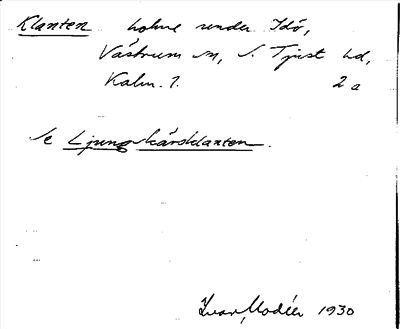 Klanten holme under Idö,
Västrum sn, S. Tjust hd,
Kalm. l. 2a
Se Ljungskärsklanten.
Ivar Modéer 1930